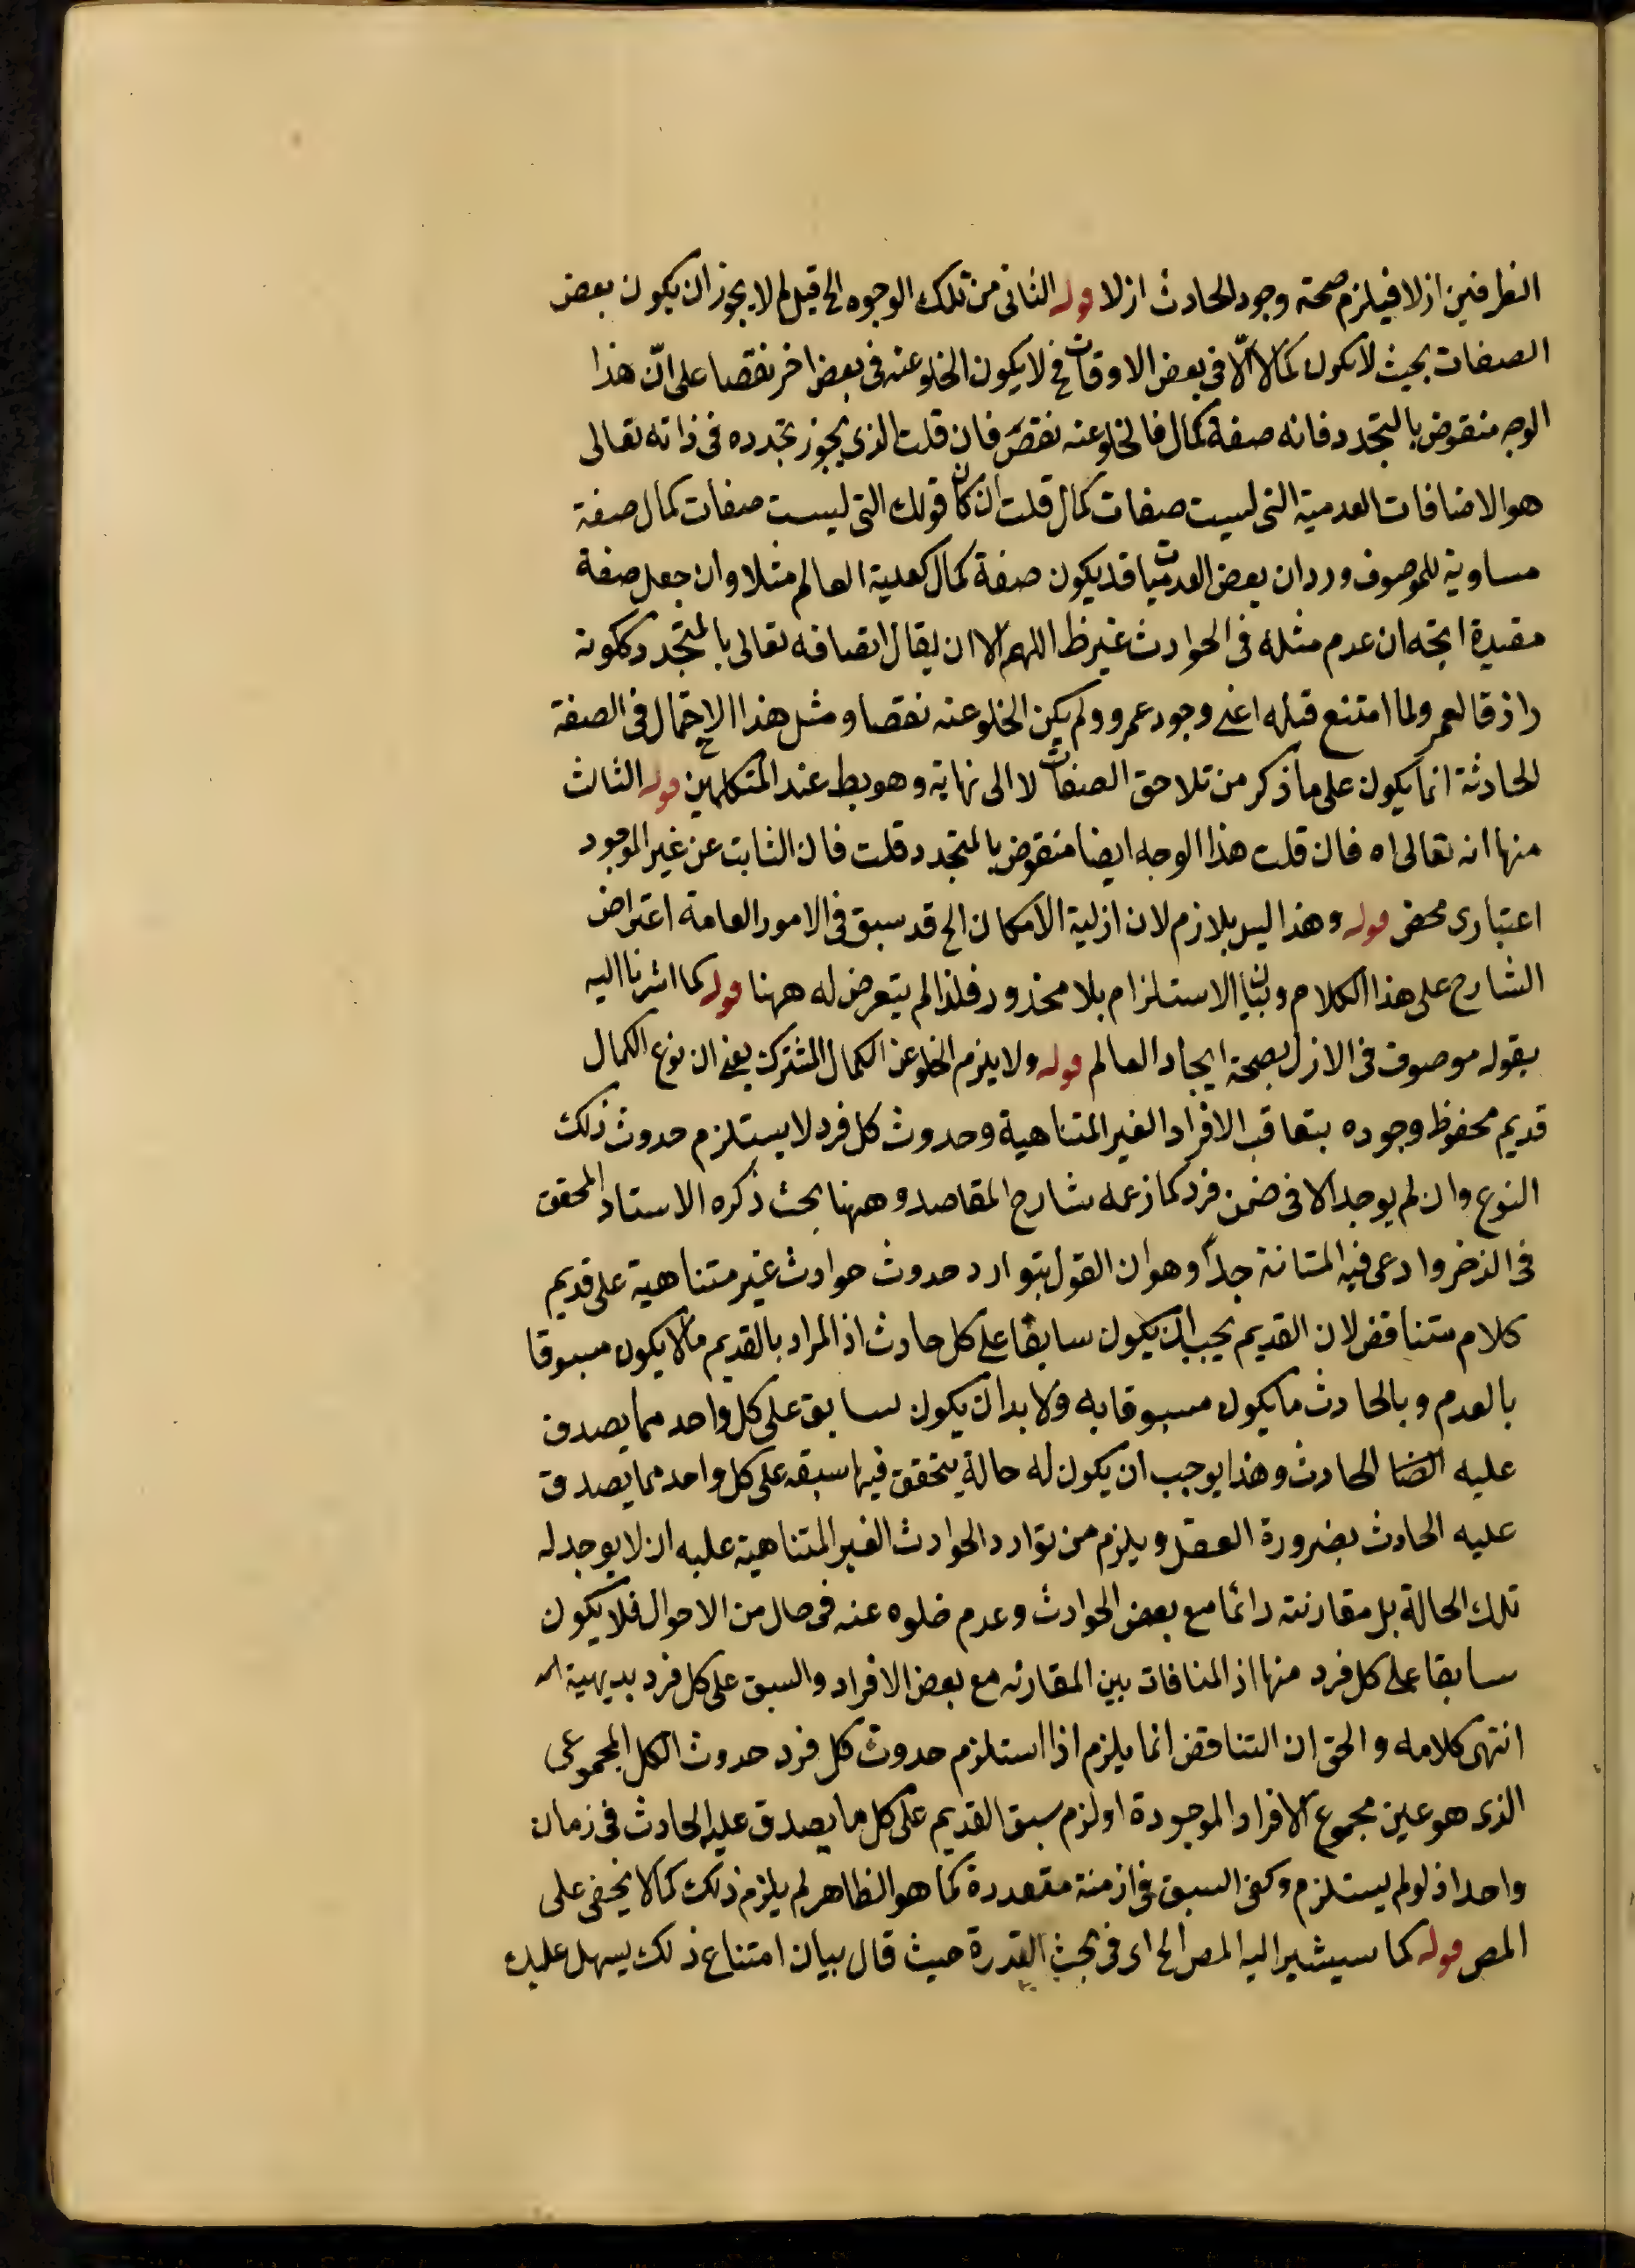 الطرفين ازلا فيلزم صحة وجود الحادث ازلا قوله الثانى من تلك الوجوه الخ قيل لم لا يجوز ان يكون بعض
الصفات بحيث لا يكون كمالا الّا فى بعض الاوقات فح لا يكون الخلو عنه فى بعض اخر نقصا على انّ هذا
الوجه منقوض بالمتجدد فانه صفة كمال فالخلو عنه نقص فان قلت الذى يجوز تجدده فى ذاته تعالى
هو الاضافات العدمية التى ليست صفات كمال قلت ان كان قولك التى ليست صفات كمال صفة
مساوية للموصوف ورد ان بعض العدميات قد يكون صفة كمال كعلية العالم مثلا وان جعل صفة
مقيدة اتجه ان عدم مثله فى الحوادث غير ظ اللهم الا ان يقال اتصافه تعالى بالمتجدد ككونه
رازقا لعمر ولما امتنع قبله اعنى وجود عمرو ولم يكن الخلو عنه نقصا ومثل هذا الاحتمال فى الصفة
الحادثة انما يكون على ما ذكر من تلاحق الصفات لا الى نهاية وهو بط عند المتكلمين قوله الثالث
منها انه تعالى اه فان قلت هذا الوجه ايضا منقوض بالمتجدد قلت فان الثابت عن غير الموجود
اعتبارى محض قوله وهذا ليس بلازم لان ازلية الامكان الخ قد سبق فى الامور العامة اعتراض
الشارح على هذا الكلام وبيان الاستلزام بلا محذور فلذا لم يتعرض له ههنا قوله كما اشرنا اليه
بقوله موصوف فى الازل بصحة ايجاد العالم قوله ولا يلزم الخلو عن الكمال المشترك يعنى ان نوع الكمال
قديم محفوظ وجوده بتعاقب الافراد الغير المتناهية وحدوث كل فرد لا يستلزم حدوث ذلك
النوع وان لم يوجد الا فى ضمن فرد كما زعمه شارح المقاصد وههنا بحث ذكره الاستاد المحقق
فى الذخر وادعى فيه المتانة جدّا وهو ان القول بتوارد حدوث حوادث غير متناهية على قديم
كلام متناقض لان القديم يجب ان يكون سابقا على كل حادث اذ المراد بالقديم ما لا يكون مسبوقا
بالعدم وبالحادث ما يكون مسبوقا به ولا بد ان يكون سابق على كل واحد مما يصدق
عليه الحادث وهذا يوجب ان يكون له حالة يتحقق فيها سبقه على كل واحد مما يصدق
عليه الحادث بضرورة العقل ويلزم من توارد الحوادث الغير المتناهية عليه ان لا يوجد له
تلك الحالة بل مقارنته دائما مع بعض الحوادث وعدم خلوه عنه فى حال من الاحوال فلا يكون
سابقا على كل فرد منها اذ المنافات بين المقارنه مع بعض الافراد والسبق على كل فرد بديهية
انتهى كلامه والحق ان التناقض انما يلزم اذا استلزم حدوث كل فرد حدوث الكل المجموعى
الذى هو عين مجموع الافراد الموجودة او لزم سبق القديم على كل ما يصدق عليه الحادث فى زمان
واحد اذ لو لم يستلزم وكفى السبق فى ازمنة متعددة كما هو الظاهر لم يلزم ذلك كما لا يخفى على
المص قوله كما سيشير اليه المص الخ اى فى بحث القدرة حيث قال بيان امتناع ذلك يسهل عليك